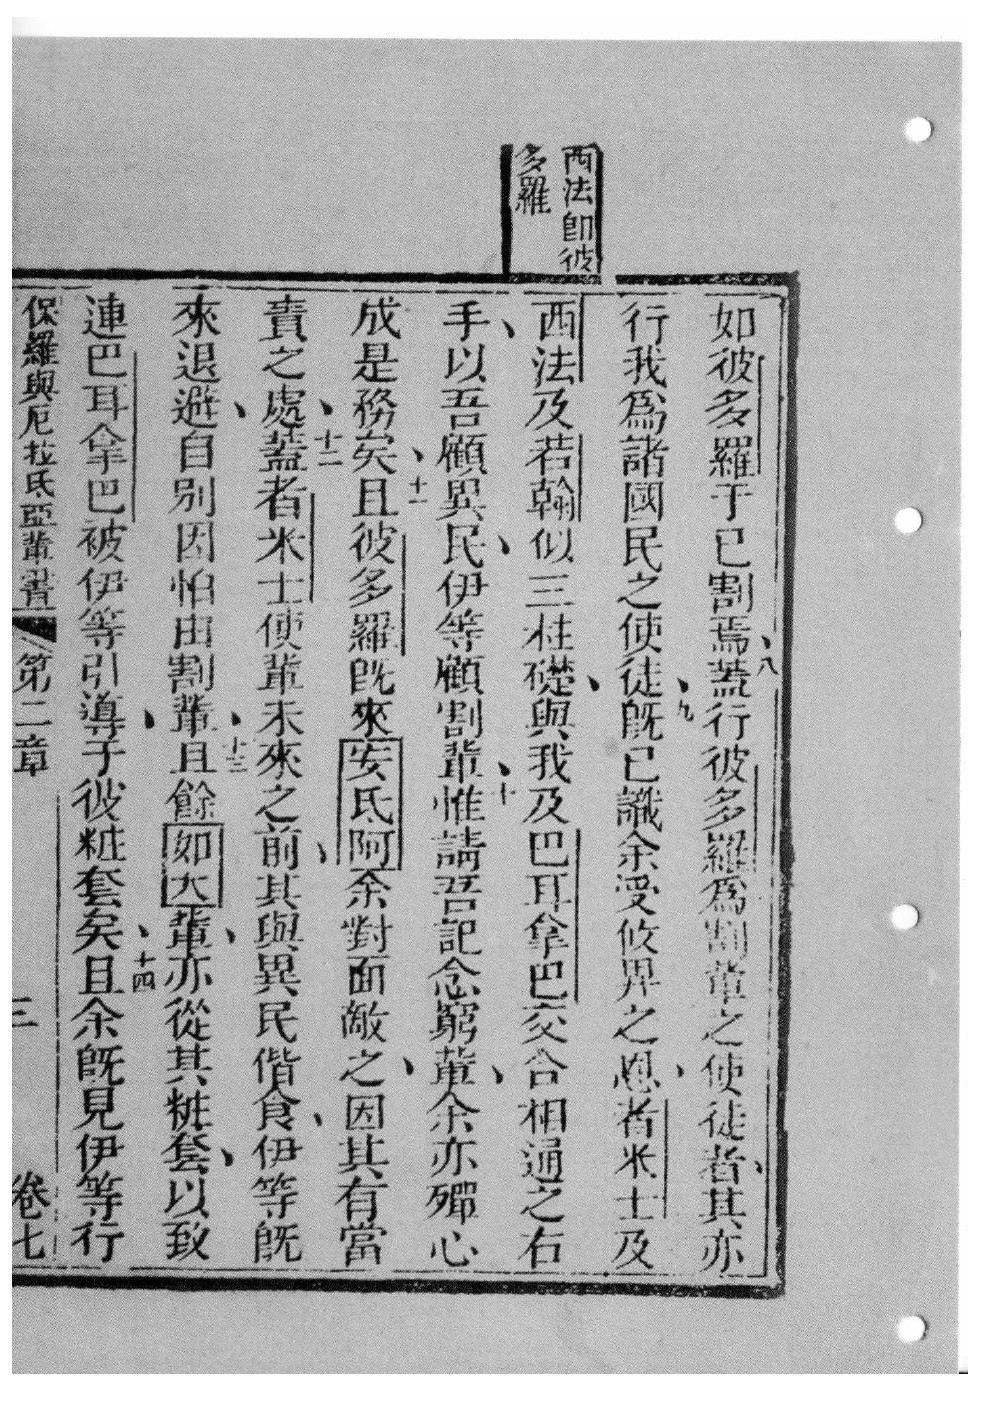 西法卽彼
多羅
如彼多羅于已割焉八蓋行彼多羅爲割輩之使徒者其亦
行我爲諸國民之使徒九旣已識余受攸畀之恩者米士及
西法及若翰似三柱礎與我及巴耳拿巴交合相通之右
手以吾顧異民伊等顧割輩十惟請吾記念窮輩余亦殫心
成是務矣十一且彼多羅旣來安氏阿余對面敵之因其有當
責之處十二蓋者米士使輩未來之前其與異民偕食伊等旣
來退避自別因怕由割輩十三且餘如大輩亦從其粧套以致
連巴耳拿巴被伊等引導于彼粧套矣十四且余旣見伊等行
保羅與尼拉氏亞輩書 第二章 三 卷七